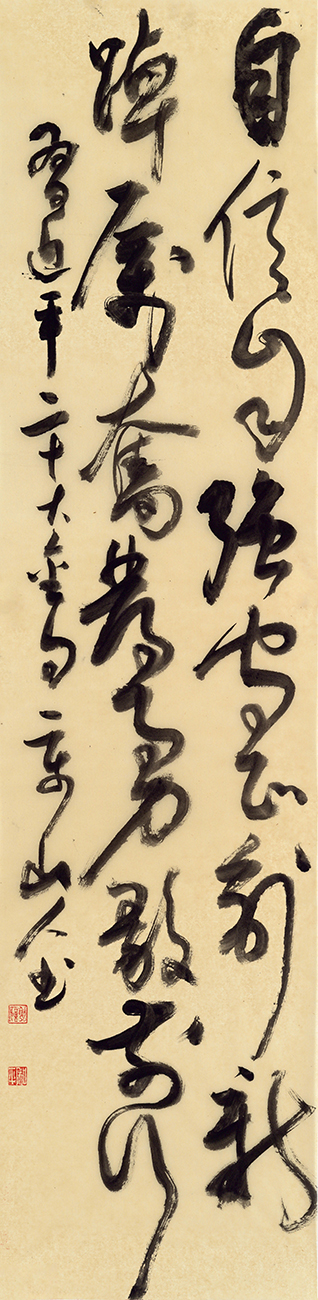 自信自強守正創新
踔厲奮發勇毅前行
習近平二十大金句 山人书